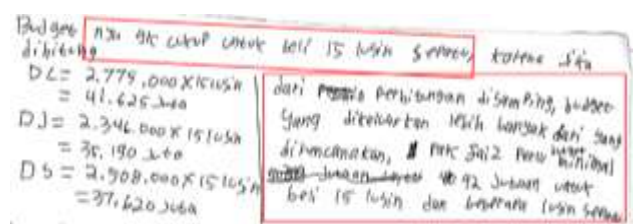 Budget nya gk cukup untuk beli 15 lusin sepatu, karena jika
dihitung
DL = 2.779.000 X 15 lusin
= 41.625 juta
DJ = 2.346.000 X 15 lusin
= 35.190 juta
DS = 2.508.000 X 15 lusin
= 37.620 juta
dari perhitungan disamping, budget
yang dikeluarkan lebih banyak dari yang
direncanakan, Pak Faiz perlu budget minimal
92 Jutaan untuk
beli 15 lusin dan beberapa lusin sepatu